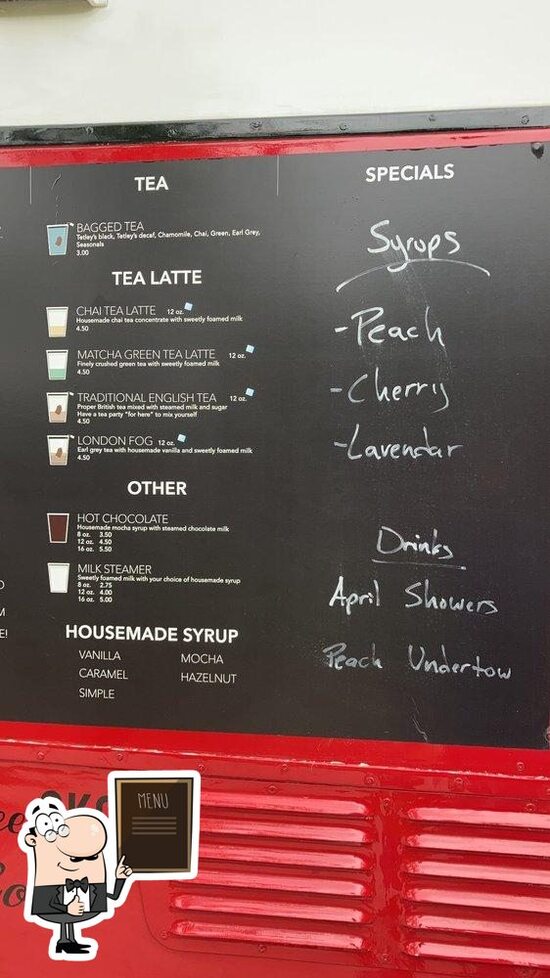 TEA
BAGGED TEA
Tetley's black, Tetley's decaf, Chamomile, Chai, Green, Earl Grey,
Seasonals
3.00
TEA LATTE
CHAI TEA LATTE 12 oz.
Housemade chai tea concentrate with sweetly foamed milk
4.50
MATCHA GREEN TEA LATTE 12 oz.
Finely crushed green tea with sweetly foamed milk
4.50
TRADITIONAL ENGLISH TEA 12 oz.
Proper British tea mixed with steamed milk and sugar
Have a tea party "for here" to mix yourself
4.50
LONDON FOG 12 oz.
Earl grey tea with housemade vanilla and sweetly foamed milk
4.50
OTHER
HOT CHOCOLATE
Housemade mocha syrup with steamed chocolate milk
8 oz. 3.50
12 oz. 4.50
16 oz. 5.50
MILK STEAMER
Sweetly foamed milk with your choice of housemade syrup
8 oz. 2.75
12 oz. 4.00
16 oz. 5.00
HOUSEMADE SYRUP
VANILLA MOCHA
CARAMEL HAZELNUT
SIMPLE
SPECIALS
Syrups
-Peach
-Cherry
-Lavendar
Drinks
April Showers
Peach Undertow
MENU